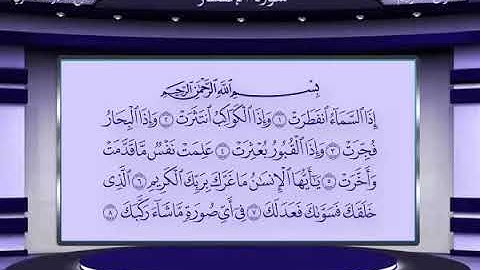 سورة الإنفطار
بِسْمِ ٱللَّهِ ٱلرَّحْمَٰنِ ٱلرَّحِيمِ
إِذَا ٱلسَّمَآءُ ٱنفَطَرَتْ ١ وَإِذَا ٱلْكَوَاكِبُ ٱنتَثَرَتْ ٢ وَإِذَا ٱلْبِحَارُ
فُجِّرَتْ ٣ وَإِذَا ٱلْقُبُورُ بُعْثِرَتْ ٤ عَلِمَتْ نَفْسٌ مَّا قَدَّمَتْ
وَأَخَّرَتْ ٥ يَٰٓأَيُّهَا ٱلْإِنسَٰنُ مَا غَرَّكَ بِرَبِّكَ ٱلْكَرِيمِ ٦ ٱلَّذِى
خَلَقَكَ فَسَوَّىٰكَ فَعَدَلَكَ ٧ فِىٓ أَىِّ صُورَةٍ مَّا شَآءَ رَكَّبَكَ ٨